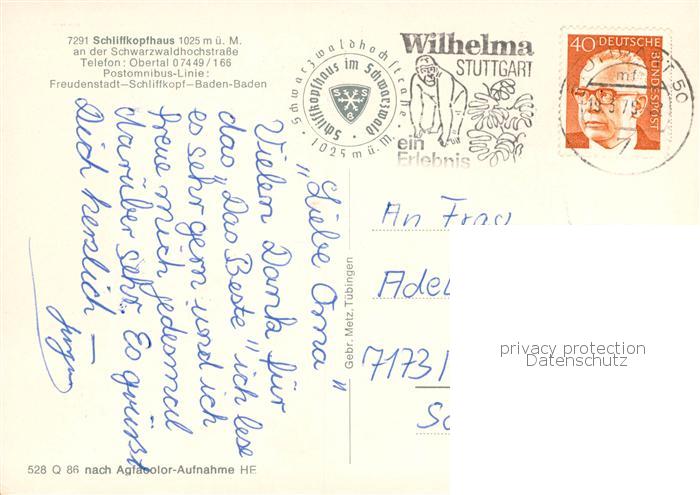 7291 Schliffkopfhaus 1025 m ü. M.
an der Schwarzwaldhochstraße
Telefon: Obertal 07449/166
Postomnibus-Linie:
Freudenstadt—Schliffkopf—Baden-Baden
Schwarzwaldhochstraße
Schliffkopfhaus im Schwarzwald
1025 m ü. M.
Wilhelma
STUTTGART
ein
Erlebnis
40 DEUTSCHE
BUNDESPOST
50
"Liebe Oma"
Vielen Dank für
das "Das Beste" ich lese
es sehr gern und ich
freue mich jedesmal
darüber sehr. Es grüsst
Dich herzlich –
Jürgen
Gebr. Metz, Tübingen
An Frau
Adel
7173/
privacy protection
Datenschutz
528 Q 86 nach Agfacolor-Aufnahme HE